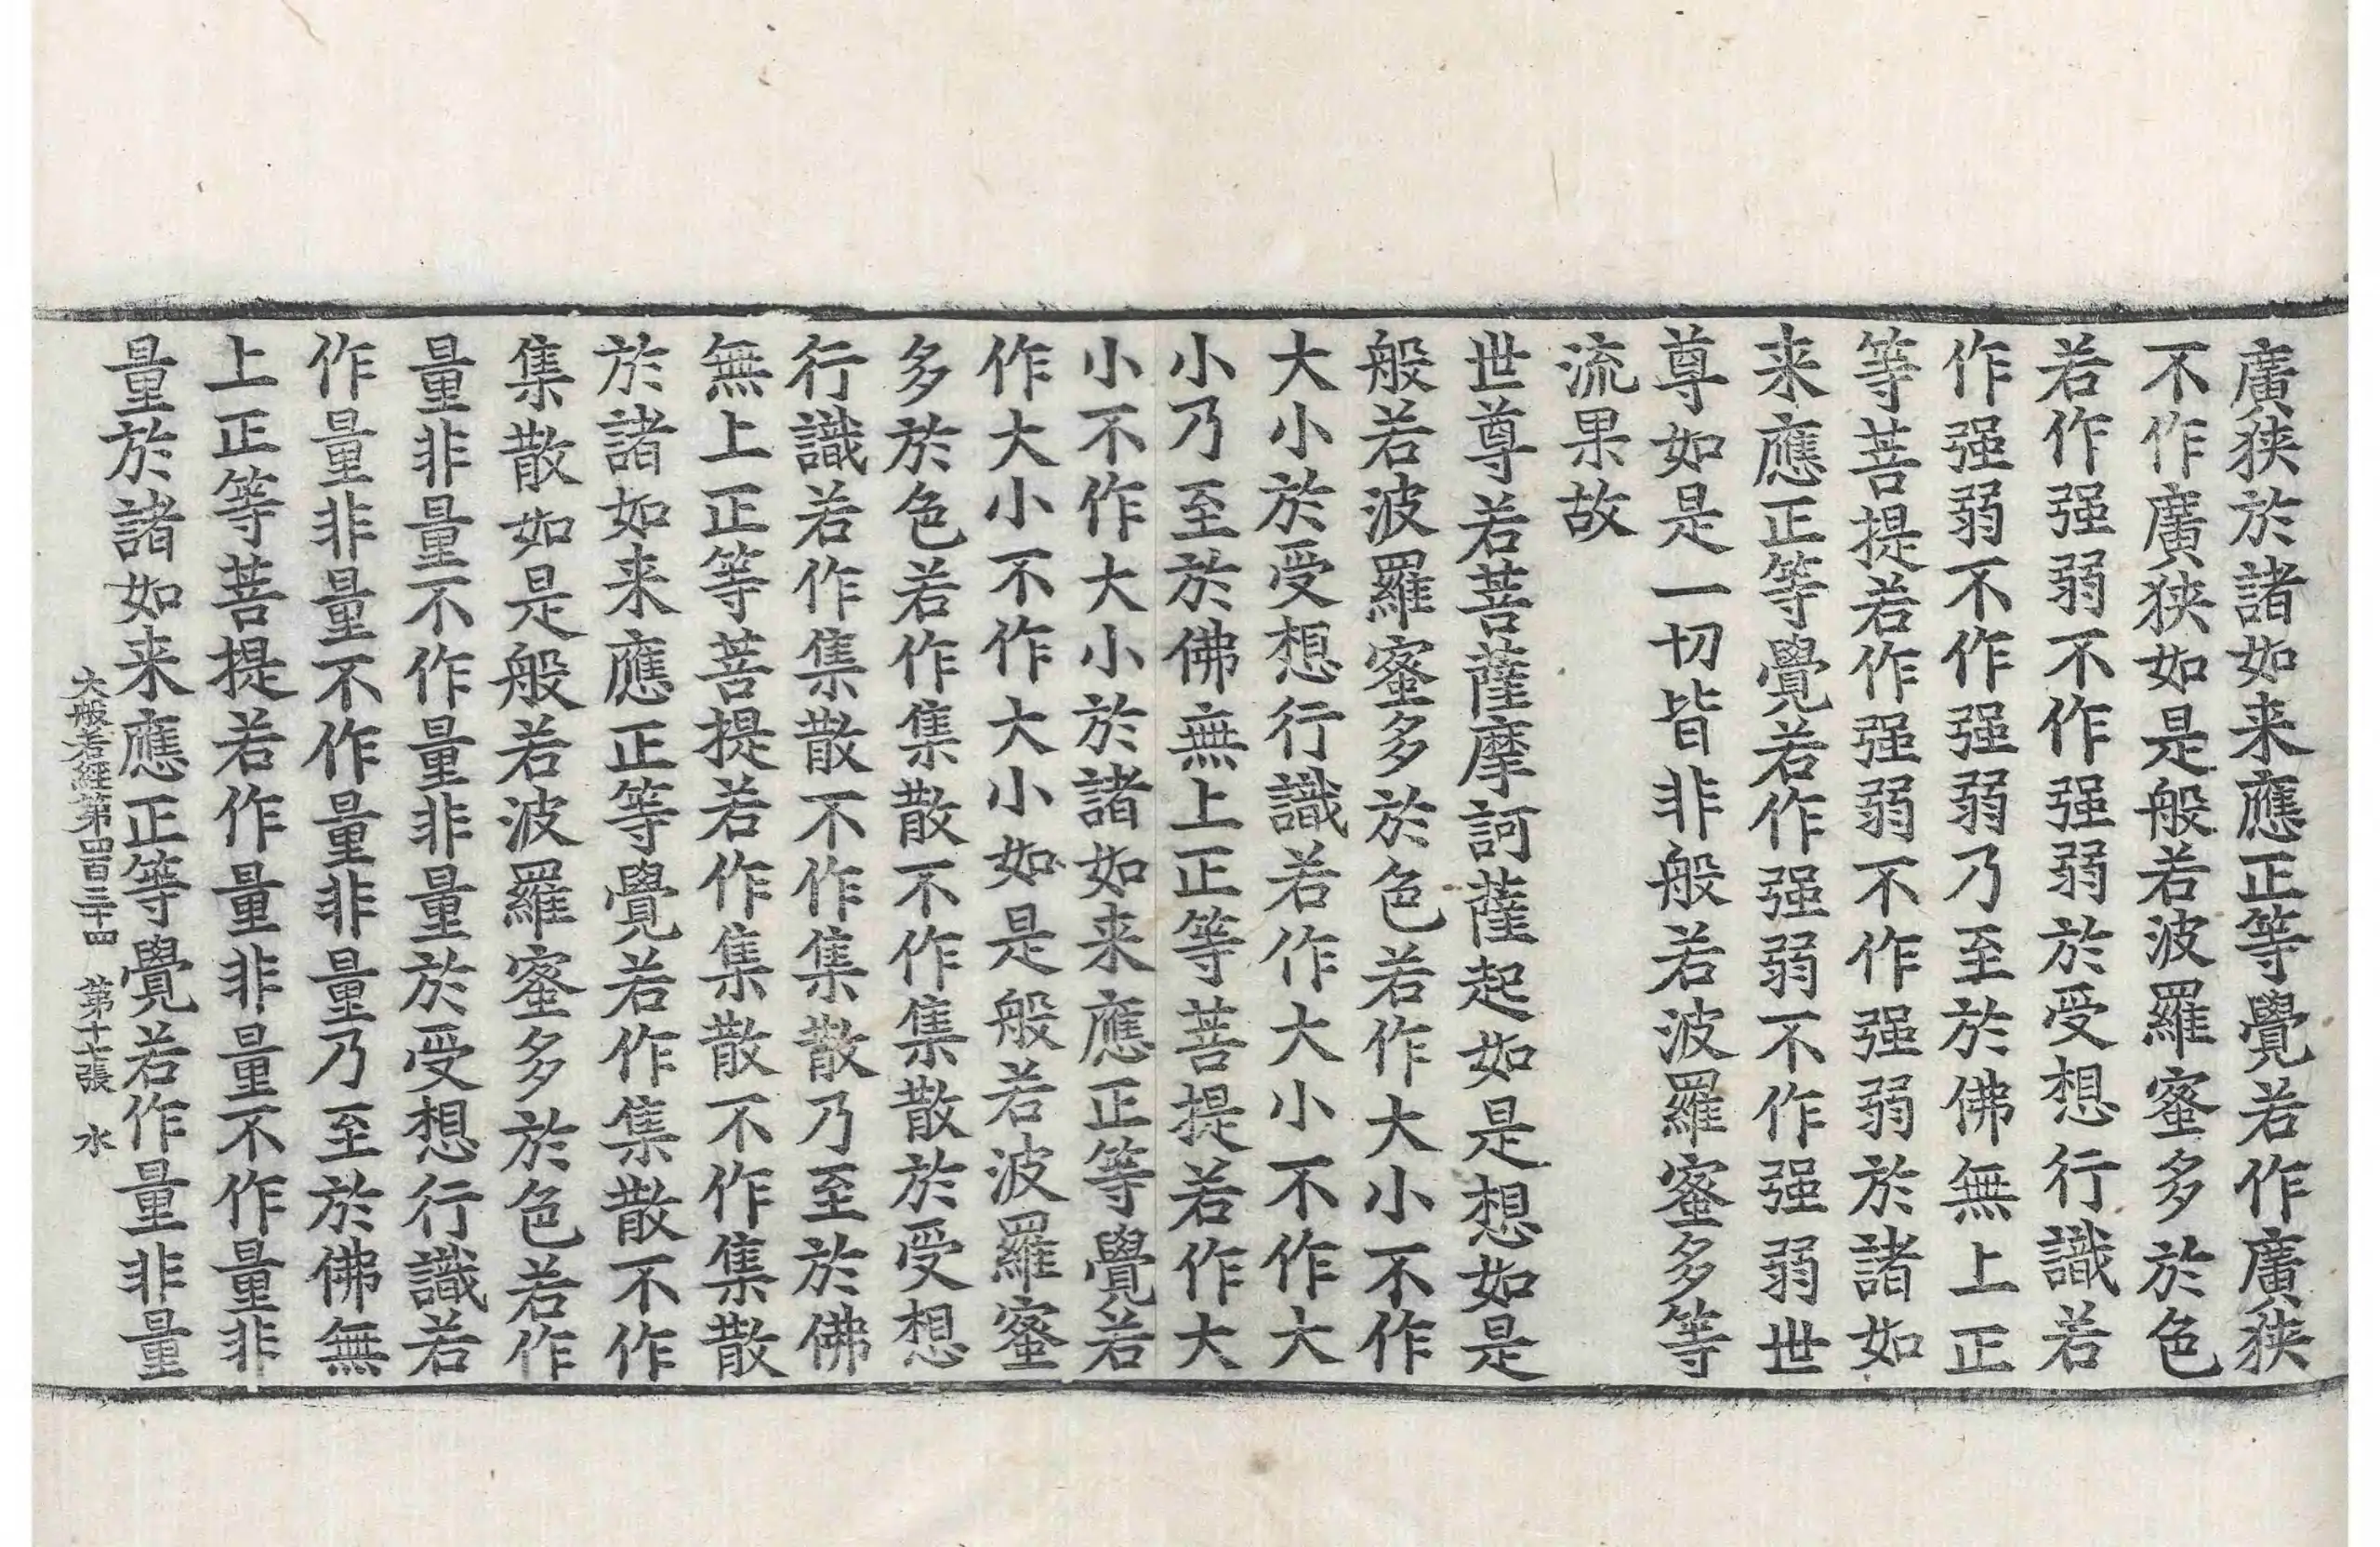 廣狹於諸如来應正等覺若作廣狹
不作廣狹如是般若波羅蜜多於色
若作强弱不作强弱於受想行識若
作强弱不作强弱乃至於佛無上正
等菩提若作强弱不作强弱於諸如
来應正等覺若作强弱不作强弱世
尊如是一切皆非般若波羅蜜多等
流果故
世尊若菩薩摩訶薩起如是想如是
般若波羅蜜多於色若作大小不作
大小於受想行識若作大小不作大
小乃至於佛無上正等菩提若作大
小不作大小於諸如来應正等覺若
作大小不作大小如是般若波羅蜜
多於色若作集散不作集散於受想
行識若作集散不作集散乃至於佛
無上正等菩提若作集散不作集散
於諸如来應正等覺若作集散不作
集散如是般若波羅蜜多於色若作
量非量不作量非量於受想行識若
作量非量不作量非量乃至於佛無
上正等菩提若作量非量不作量非
量於諸如来應正等覺若作量非量
大般若經第四百三十四 第十七張 水